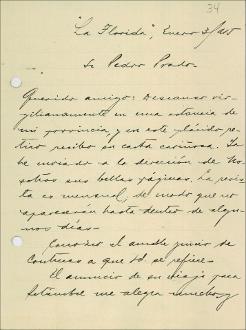 34
"La Florida", Enero 3/915
Sr Pedro Prado
Querido amigo: Descanso vir-
gilianamente en una estancia de
mi provincia, y en este plácido re-
tiro recibo su carta cariñosa. Ya
he enviado a la dirección de No-
sotros sus bellas páginas. La revis-
ta es mensual, de modo que no
aparecerán hasta dentro de algu-
nos días.
Conozco el amable juicio de
Contreras a que Ud. se refiere.
El anuncio de su viaje para
Setiembre me alegra mucho, y